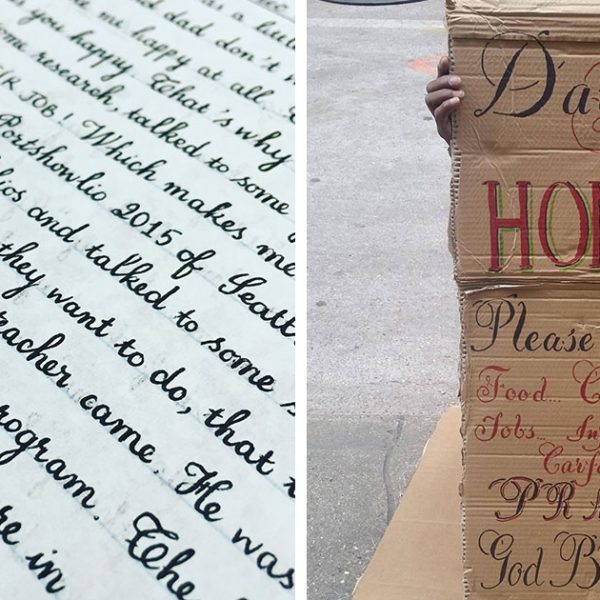 as a
me happy at all.
and dad don't
you happy. That's why
some research, talked to some
JOB! Which makes me
Portshowlio 2015 of Seatt
ios and talked to some s
they want to do, that
eacher came. He was
rogram. The
re in
Da
HO
Please
Food... C
Jobs... In
Carf
PR
God B